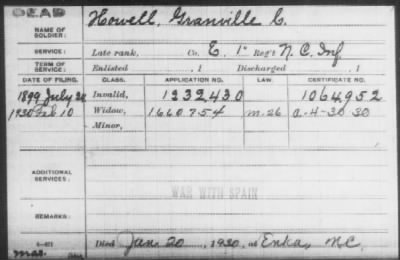 DEAD
NAME OF SOLDIER: Howell, Granville C.
SERVICE: Late rank, Co. E, 1" Reg't N.C. Inf
TERM OF SERVICE: Enlisted , 1 Discharged , 1
DATE OF FILING. CLASS. APPLICATION NO. LAW. CERTIFICATE NO.
1899 July 24 Invalid, 1232430 1064952
1930 Feb 10 Widow, 1660754 m-26 a-4-30-30
Minor,
ADDITIONAL SERVICES:
WAR WITH SPAIN
REMARKS:
Died Jan. 20, 1930, at Enka, N.C.